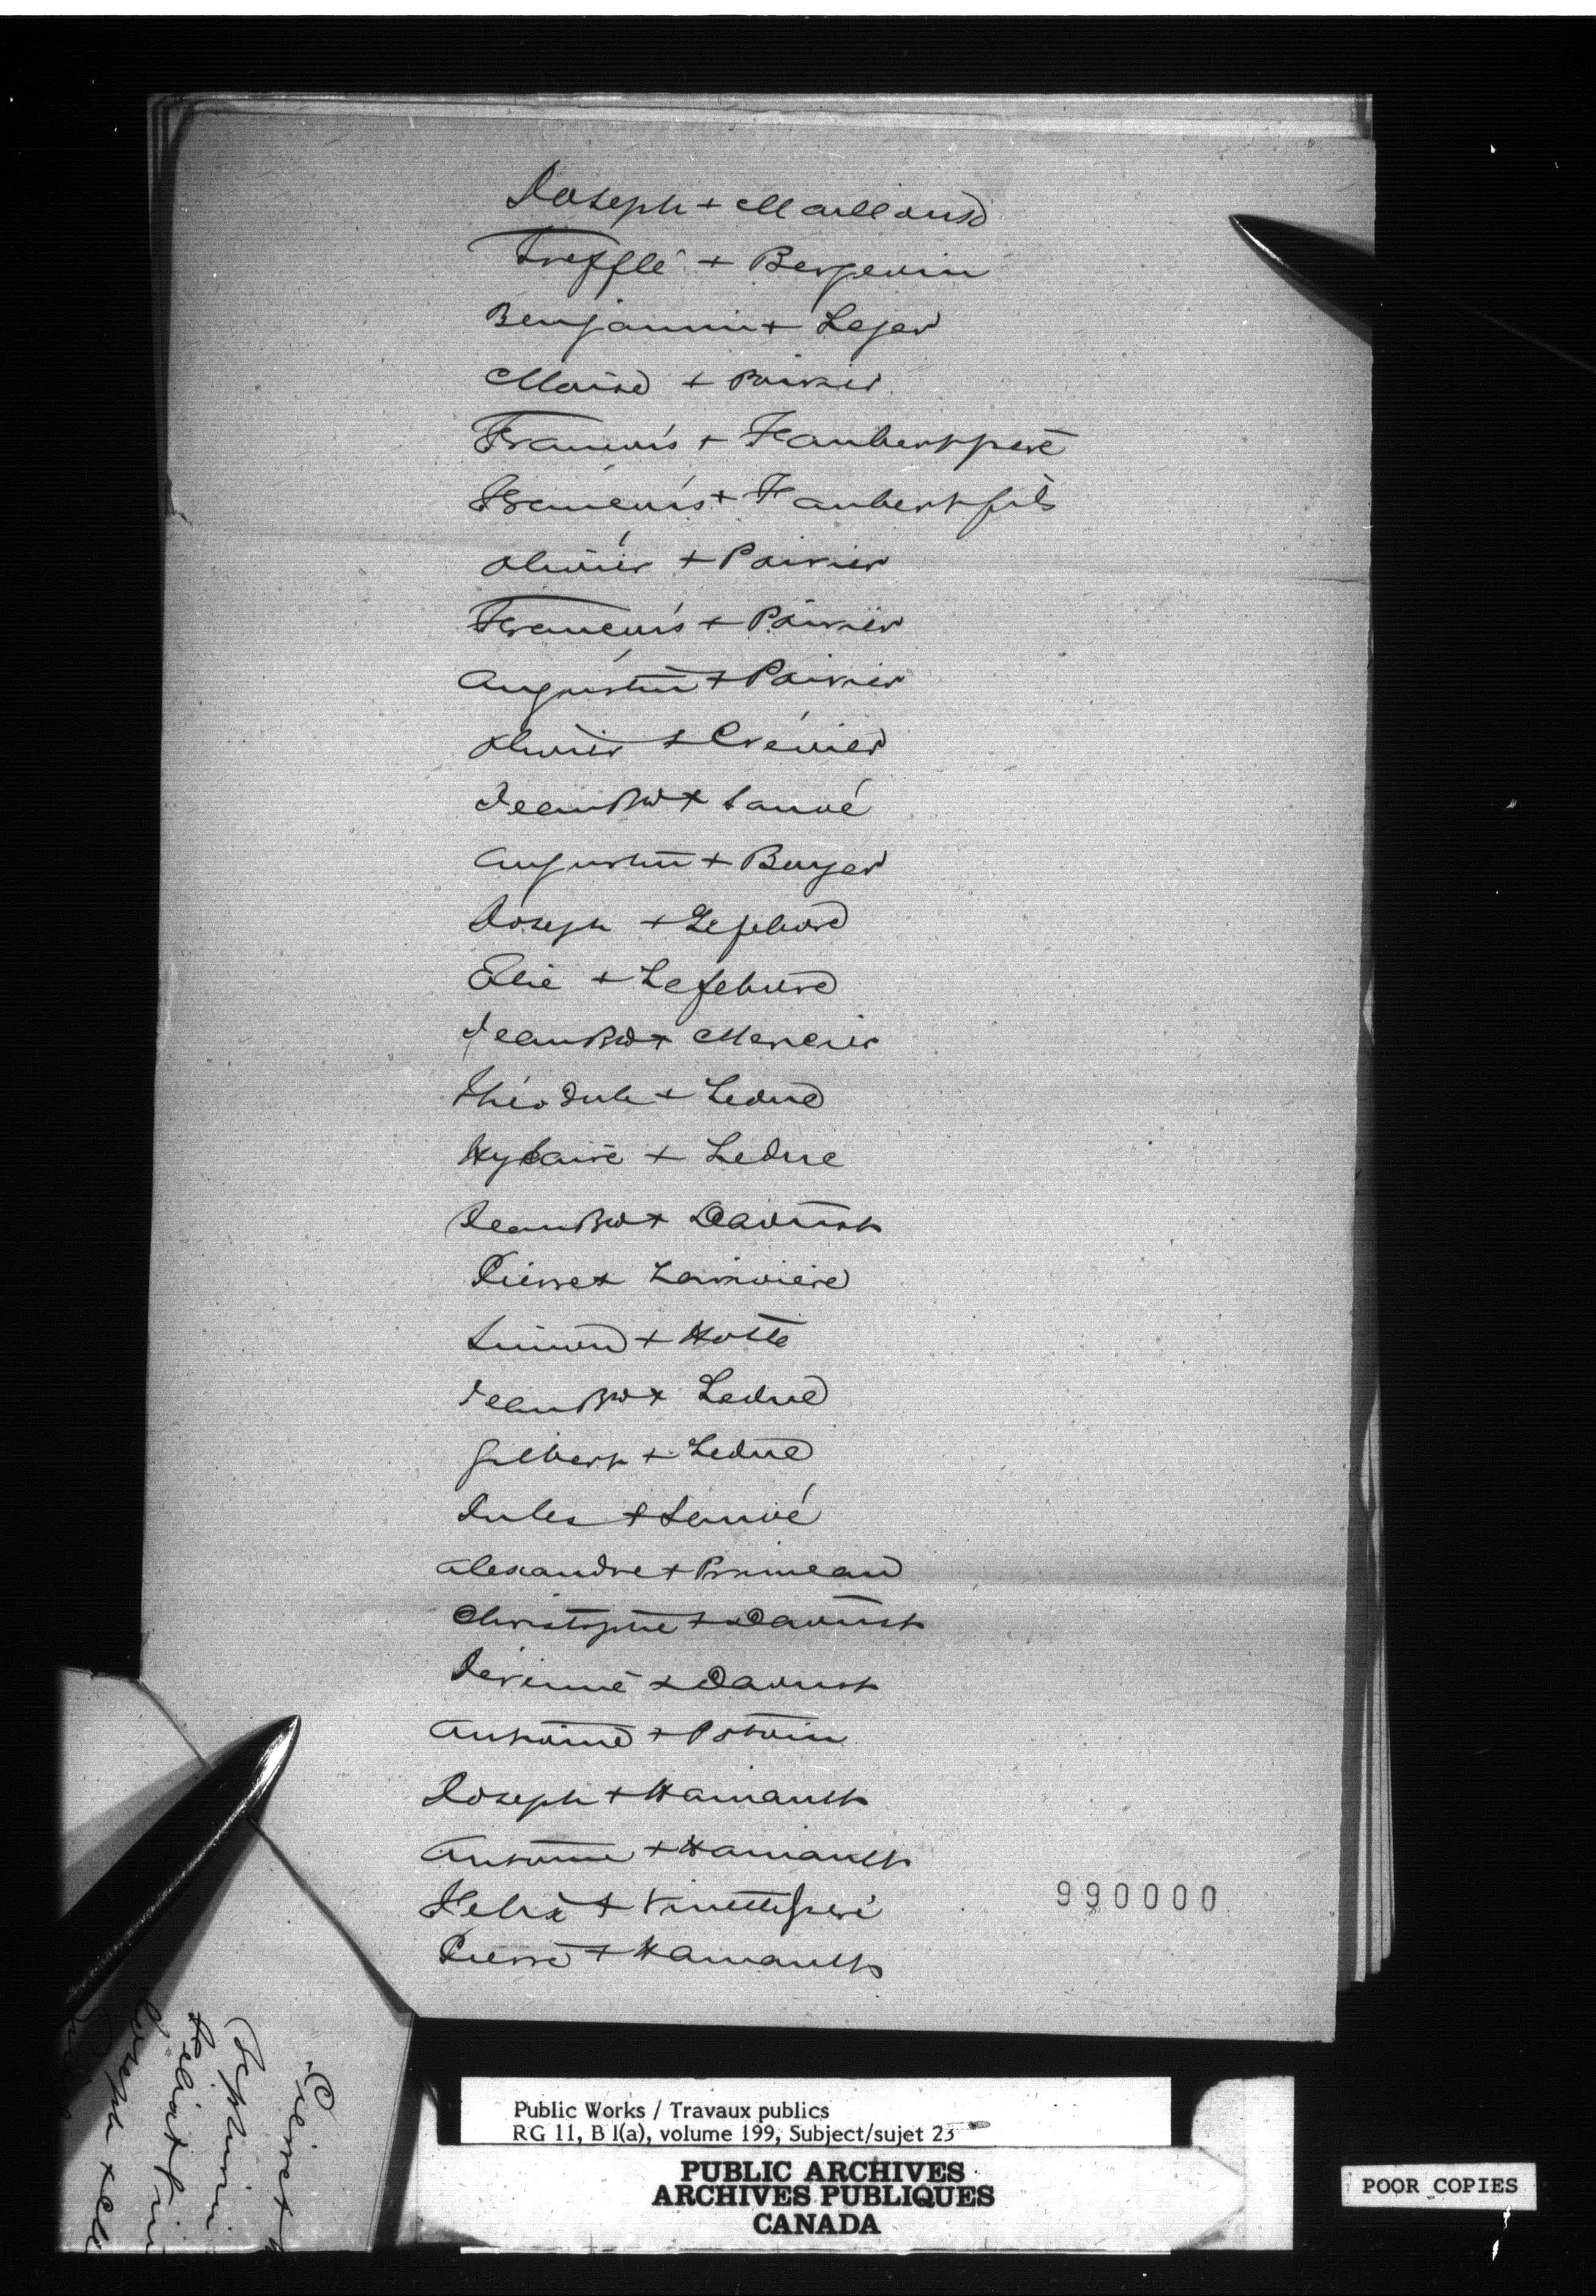 Joseph + Mailloux
Trefflé + Bergevin
Benjamin + Leger
Moise + Poirier
Francois + Faubert père
Francois + Faubert fils
Olivier + Poirier
Francois + Poirier
Augustin + Poirier
Olivier + Crévier
Jean Bte + Sauvé
Augustin + Boyer
Joseph + Lefebvre
Elie + Lefebvre
Jean Bte + Mercier
Théodule + Leduc
Hylaire + Leduc
Jean Bte + Daoust
Pierre + Larivière
Simon + Hotte
Jean Bte + Leduc
Gilbert + Leduc
Jules + Sauvé
Alexandre + Primeau
Christophe + Daoust
Jérémie + Daoust
Antoine + Potvin
Joseph + Hainault
Antoine + Hainault
Felix + Vinette père
Pierre + Hainault
990000
Pierre +
Joseph +
Public Works / Travaux publics
RG 11, B 1(a), volume 199, Subject/sujet 23
PUBLIC ARCHIVES
ARCHIVES PUBLIQUES
CANADA
POOR COPIES